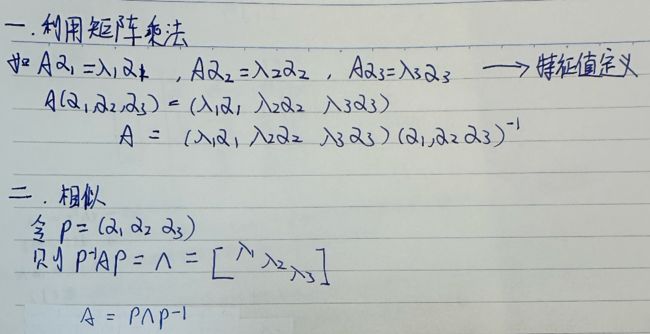 一.利用矩阵乘法
如 Aα₁=λ₁α₁ , Aα₂=λ₂α₂ , Aα₃=λ₃α₃ ⟶ 特征值定义
A(α₁,α₂,α₃) = (λ₁α₁ λ₂α₂ λ₃α₃)
A = (λ₁α₁ λ₂α₂ λ₃α₃)(α₁,α₂ α₃)⁻¹
二.相似
令 P=(α₁ α₂ α₃)
则 P⁻¹AP = Λ = [λ₁ λ₂ λ₃]
A = PΛP⁻¹